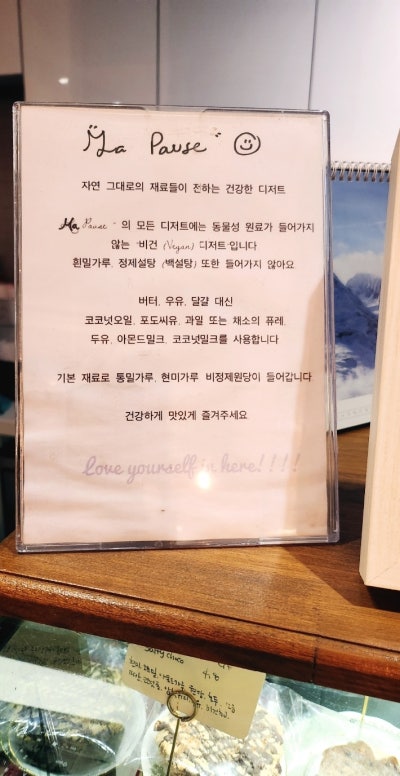 Ma Pause
자연 그대로의 재료들이 전하는 건강한 디저트
Ma Pause 의 모든 디저트에는 동물성 원료가 들어가지
않는 비건 (Vegan) 디저트 입니다
흰밀가루, 정제설탕 (백설탕) 또한 들어가지 않아요
버터, 우유, 달걀 대신
코코넛오일, 포도씨유, 과일 또는 채소의 퓨레,
두유, 아몬드밀크, 코코넛밀크를 사용합니다
기본 재료로 통밀가루, 현미가루 비정제원당이 들어갑니다.
건강하게 맛있게 즐겨주세요
love yourself in here! ! ! !